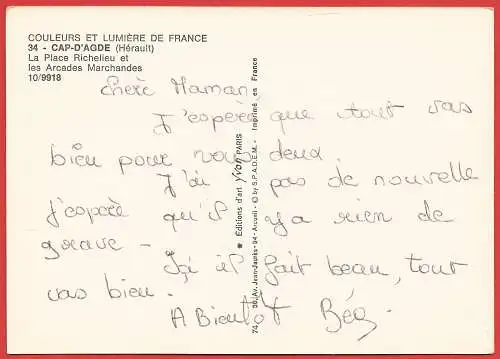 COULEURS ET LUMIÈRE DE FRANCE
34 - CAP-D'AGDE (Hérault)
La Place Richelieu et
les Arcades Marchandes
10/9918
chère Maman
J'espère que tout vas
bien pour vous deux
J'ai pas de nouvelle
J'espère qu'il y a rien de
grave -
Ici il fait beau, tout
vas bien.
A Bientot
★ Éditions d'art yvon PARIS
74, 90, Av. Jean-Jaurès - 94 - Arcueil - © by S.P.A.D.E.M. - Imprimé en France